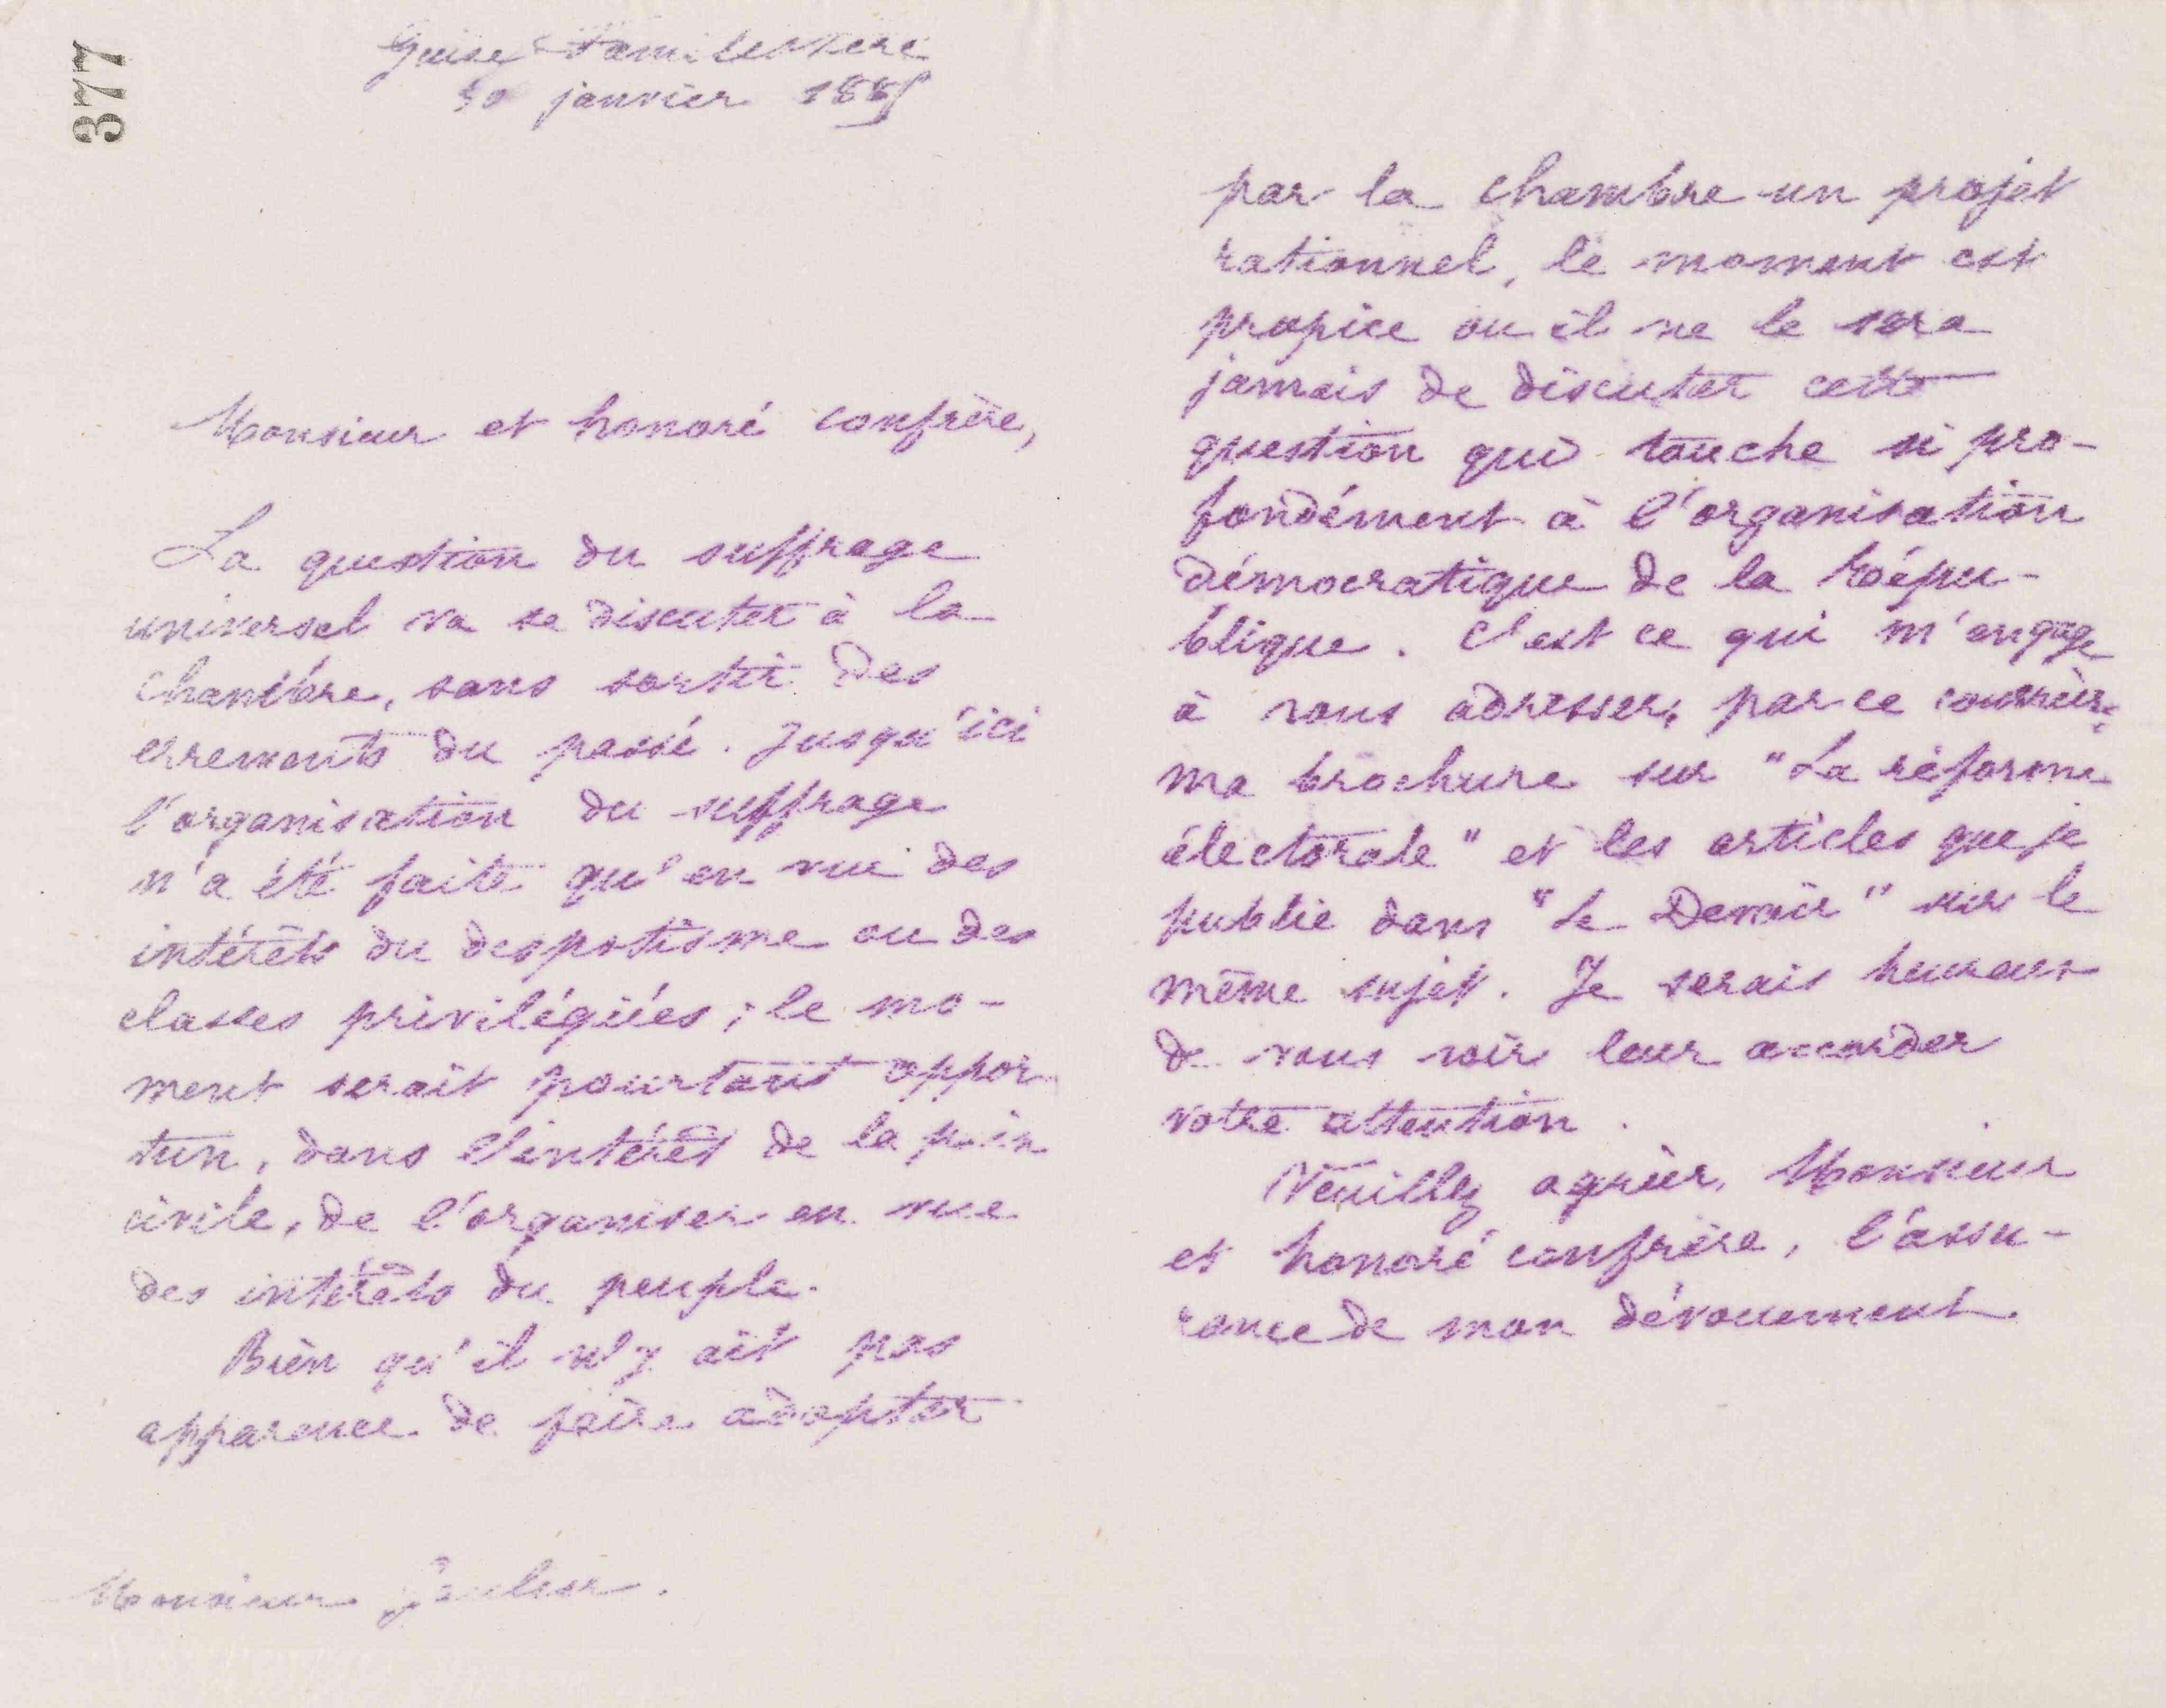 377
Guise Familistère
30 janvier 1885
Monsieur et honoré confrère,
La question du suffrage
universel va se discuter à la
Chambre, sans sortir des
errements du passé. Jusqu'ici
l'organisation du suffrage
n'a été faite qu'en vue des
intérêts du despotisme ou des
classes privilégiées ; le mo-
ment serait pourtant oppor
tun, dans l'intérêt de la paix
civile, de l'organiser en vue
des intérêts du peuple.
Bien qu'il n'y ait pas
apparence de faire adopter
Monsieur
par la Chambre un projet
rationnel, le moment est
propice ou il ne le sera
jamais de discuter cette
question qui touche si pro-
fondément à l'organisation
démocratique de la Répu-
blique. C'est ce qui m'engage
à vous adresser, par ce courrier,
ma brochure sur "La réforme
électorale" et les articles que je
publie dans "Le Devoir" sur le
même sujet. Je serais heureux
de vous voir leur accorder
votre attention.
Veuillez agréer, Monsieur
et honoré confrère, l'assu-
rance de mon dévouement.